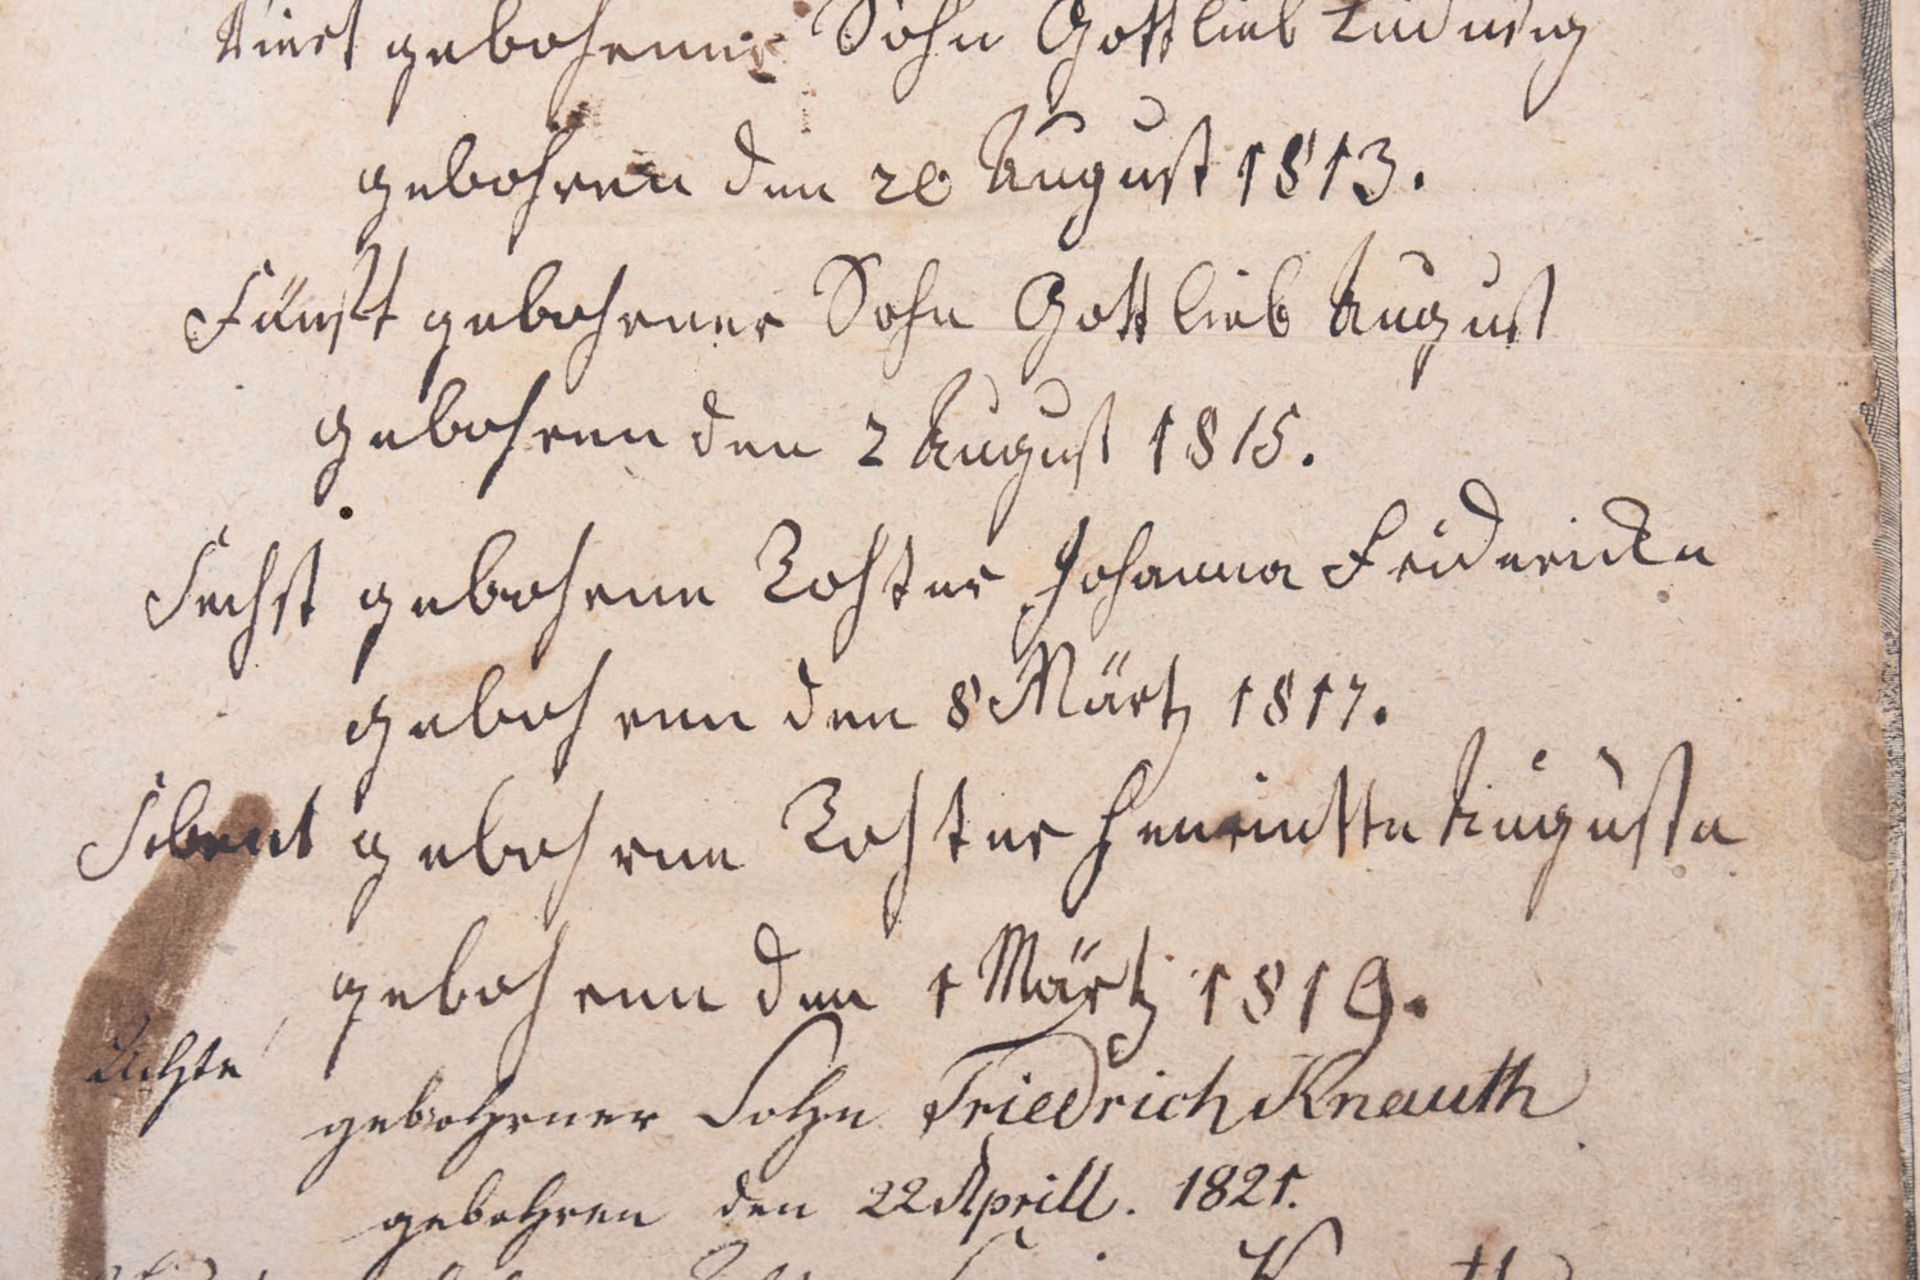 Viert gebohrner Sohn Gottlieb Ludwig
gebohren den 20 August 1813.
Fünft gebohrner Sohn Gottlieb August
gebohren den 2 August 1815.
Sechst gebohrne Tochter Johanna Fridericka
gebohren den 8 Märtz 1817.
Sibent gebohrne Tochter Henriette Auguste
gebohren den 1 Märtz 1819.
Achte
gebohrner Sohn Friedrich Knauth
gebohren den 22 Aprill. 1821.